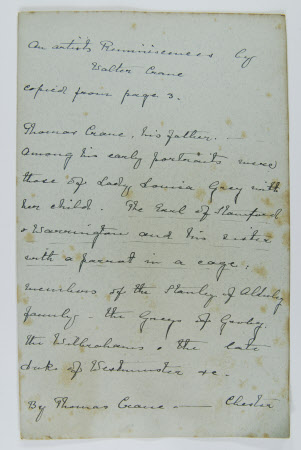 An artists Reminiscences by
Walter Crane
copied from page 3.
Thomas Crane, his father. —
Among his early portraits were
those of Lady Louisa Grey with
her child. The Earl of Stamford
& Warrington and his sister
with a parrot in a cage,
members of the Stanley of Alderley
family - the Greys of Groby.
the Wilbrahams & the late
duke of Westminster &c.
By Thomas Crane — Chester